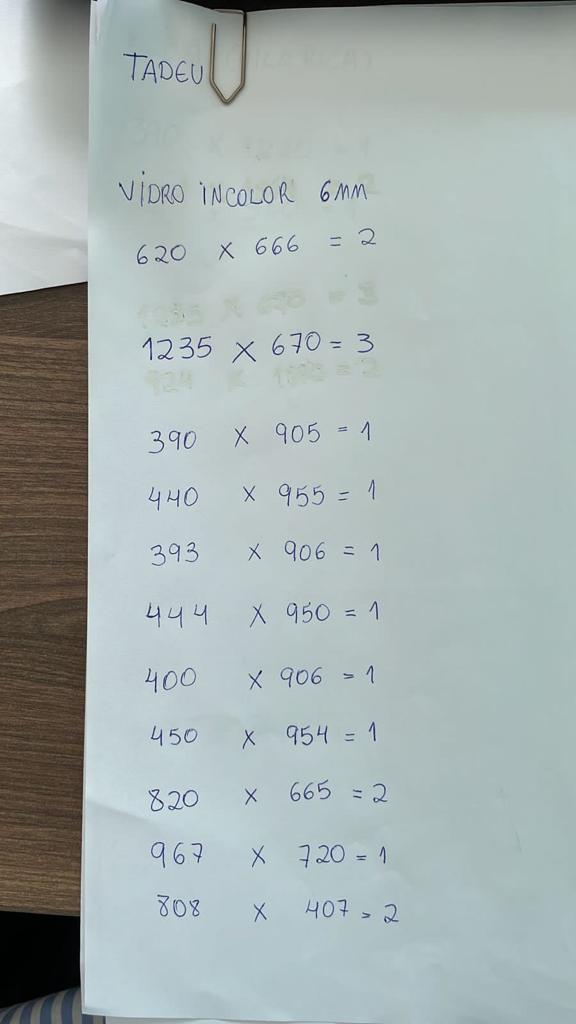 TADEU
VIDRO INCOLOR 6MM
620 X 666 = 2
1235 X 670 = 3
390 X 905 = 1
440 X 955 = 1
393 X 906 = 1
444 X 950 = 1
400 X 906 = 1
450 X 954 = 1
820 X 665 = 2
967 X 720 = 1
808 X 407 = 2